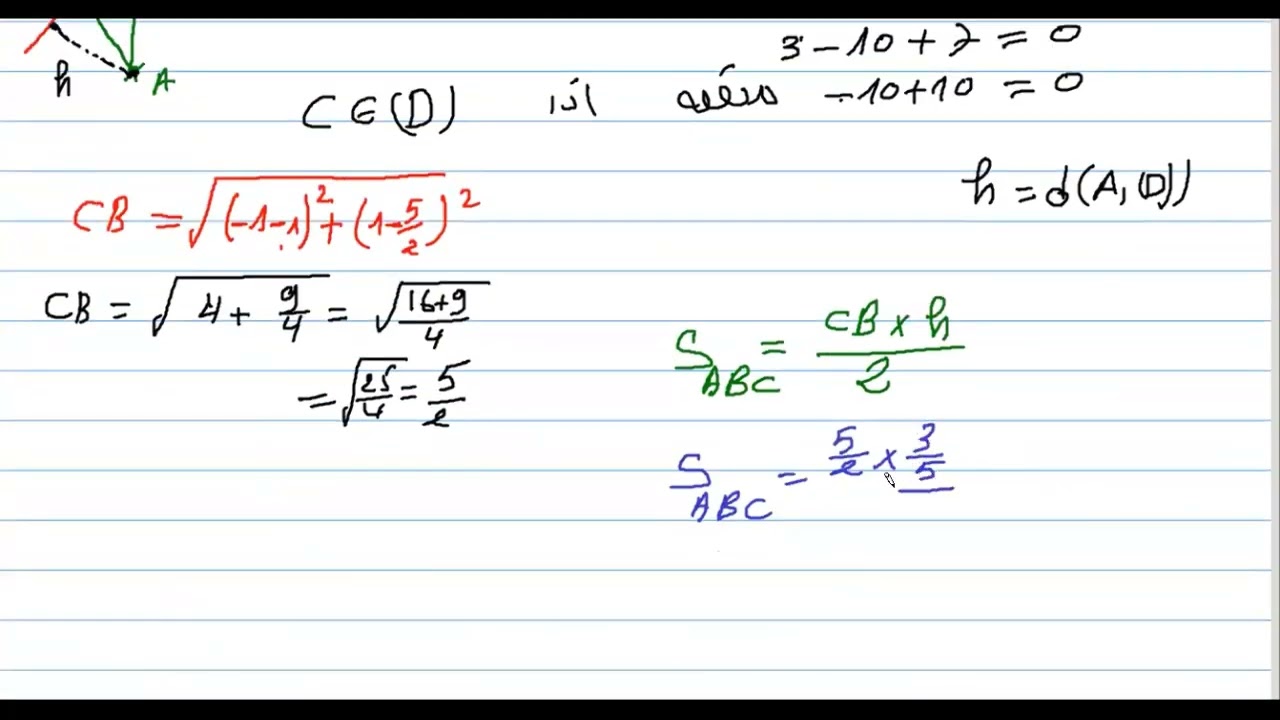 3 - 10 + 7 = 0
h A
C ∈ (D) اذا محققة -10 + 10 = 0
h = d(A, (D))
CB = √((-1-1)² + (1-5/2)²)
CB = √(4 + 9/4) = √((16+9)/4)
= √(25/4) = 5/2
S_ABC = (CB × h)/2
S_ABC = 5/2 × 3/5